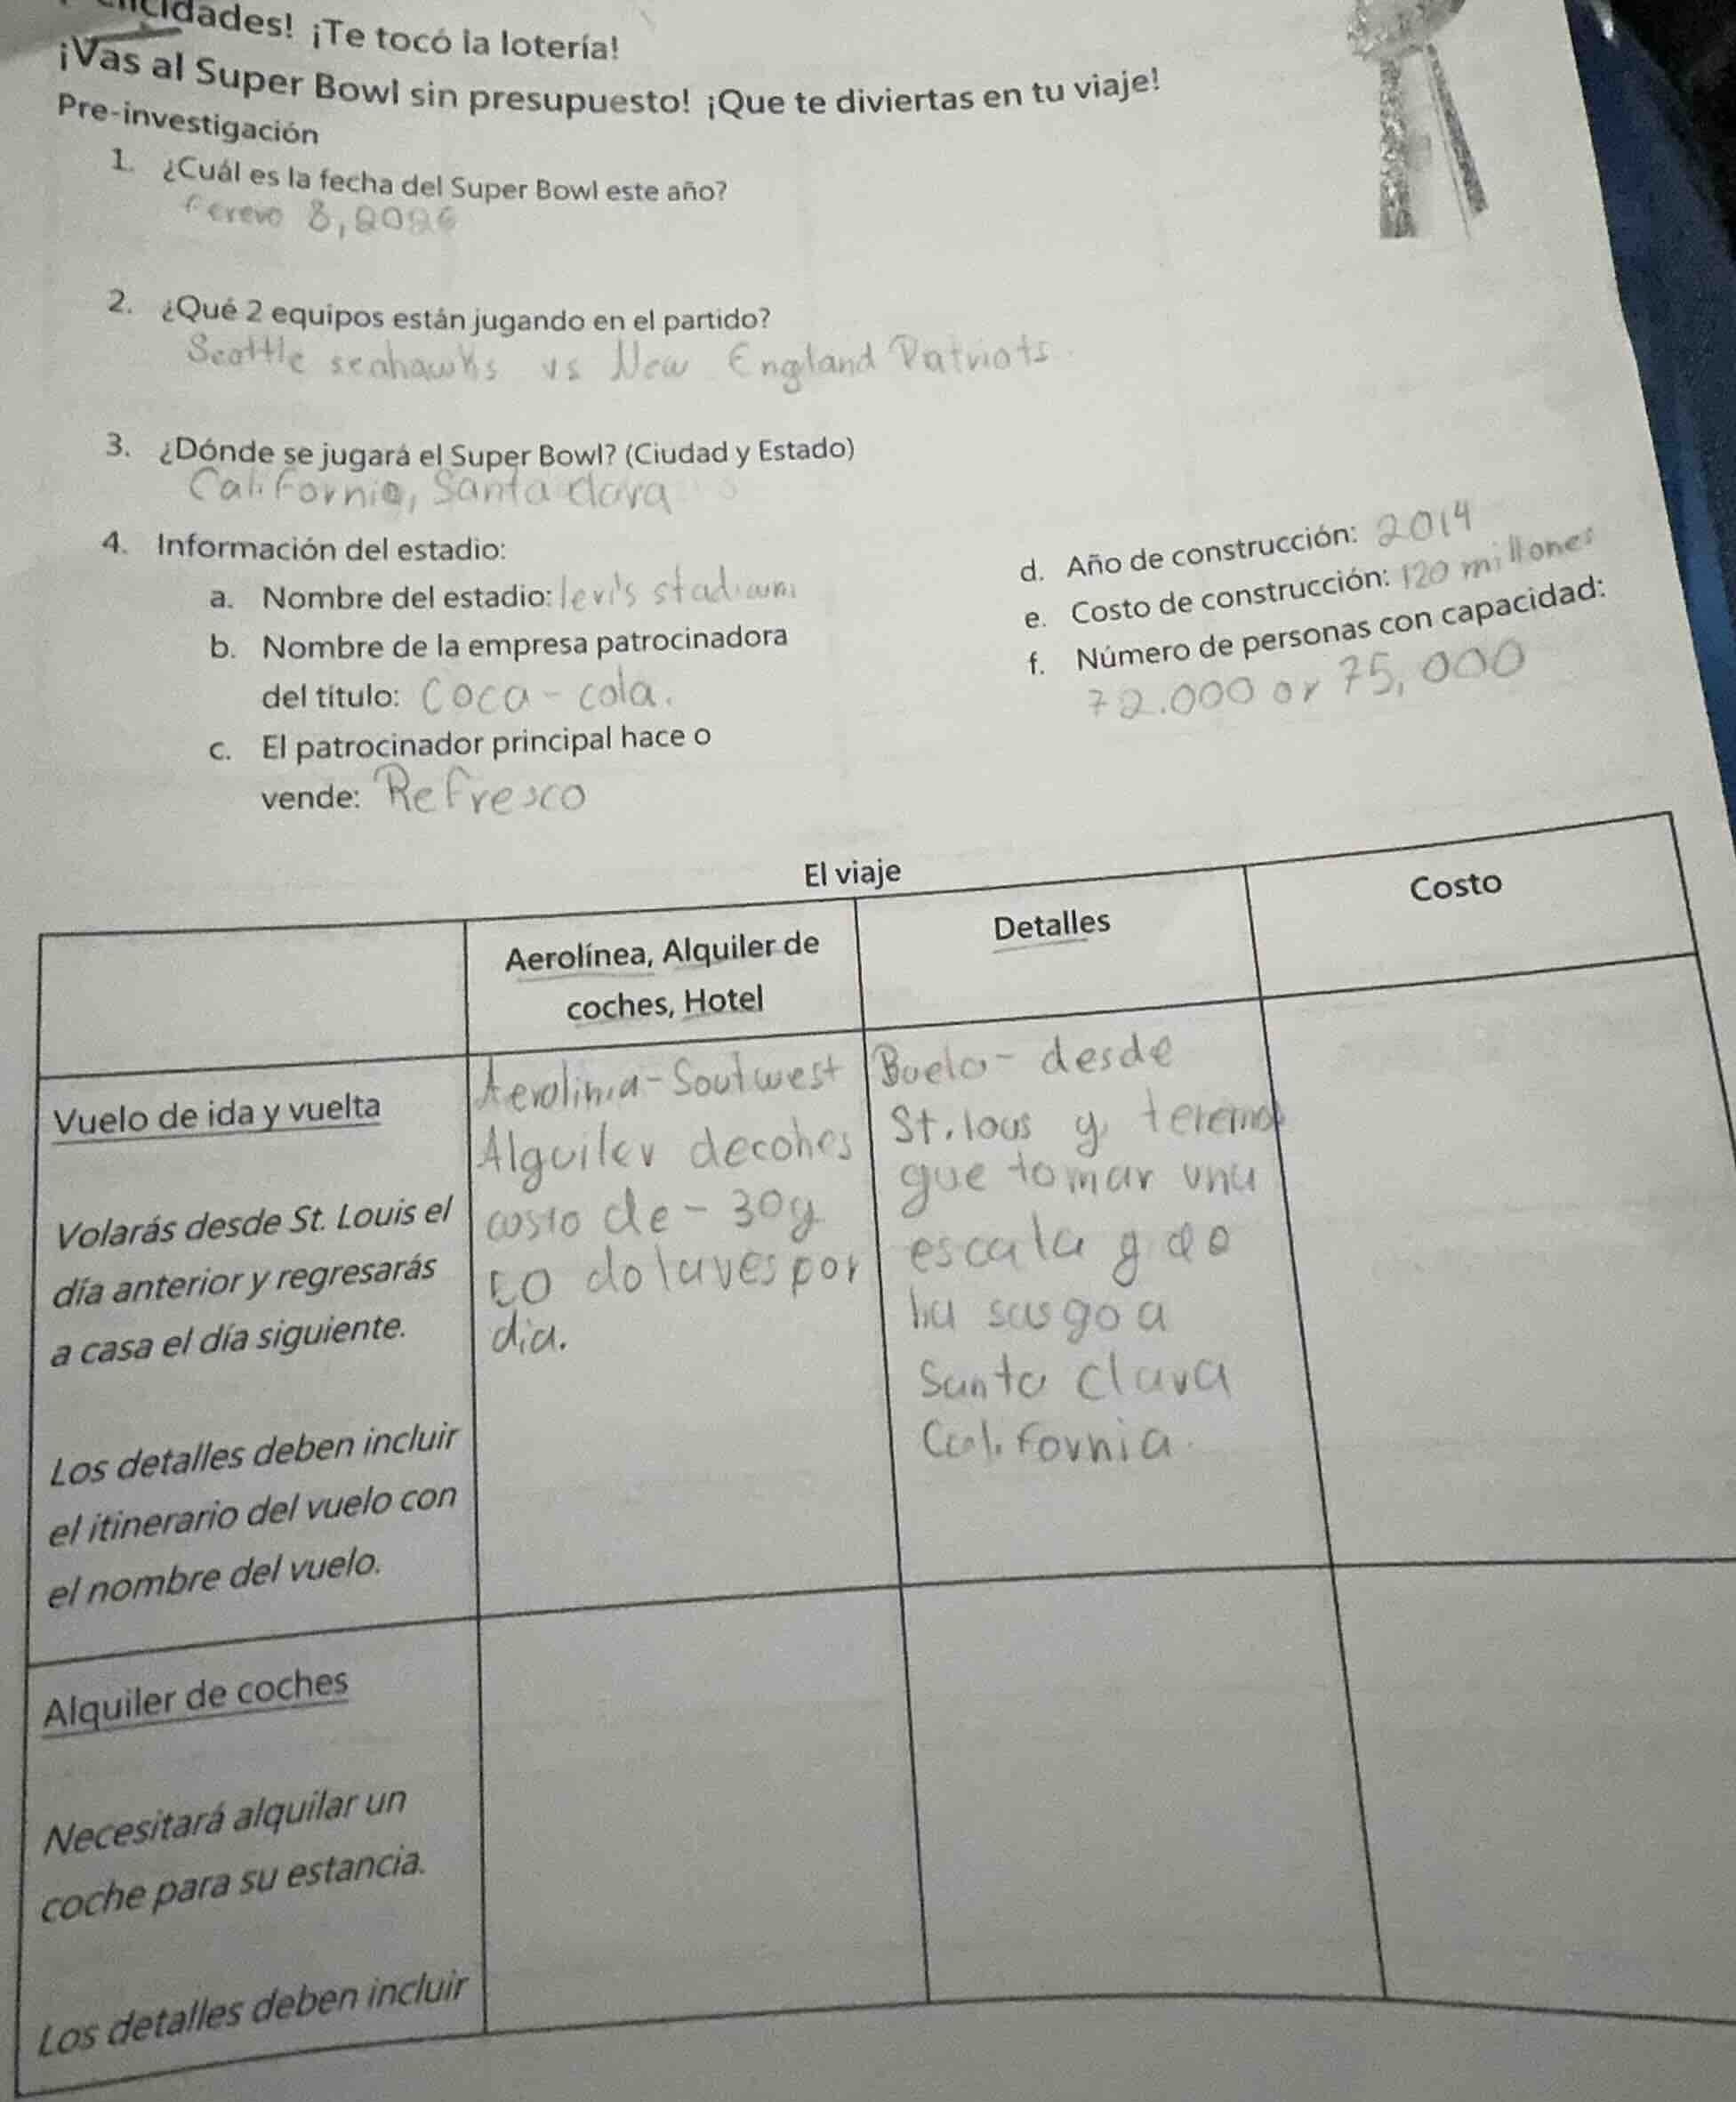 ¡Te tocó la lotería!
¡Vas al Super Bowl sin presupuesto! ¡Que te diviertas en tu viaje!
Pre-investigación
1. ¿Cuál es la fecha del Super Bowl este año?
8, 2026
2. ¿Qué 2 equipos están jugando en el partido?
Seattle seahawks vs New England Patriots.
3. ¿Dónde se jugará el Super Bowl? (Ciudad y Estado)
California, Santa clara
4. Información del estadio:
a. Nombre del estadio: levi's stadium
b. Nombre de la empresa patrocinadora
del título: Coca-cola.
c. El patrocinador principal hace o
vende: Refresco
d. Año de construcción: 2014
e. Costo de construcción: 120 millones
f. Número de personas con capacidad:
72.000 or 75,000
El viaje
Aerolínea, Alquiler de
coches, Hotel
Detalles
Costo
Vuelo de ida y vuelta
Volarás desde St. Louis el
día anterior y regresarás
a casa el día siguiente.
Los detalles deben incluir
el itinerario del vuelo con
el nombre del vuelo.
Aerolinia-Soutwest
Alguiler decohes
costo de - 30y
dolares por
dia.
Buelo- desde
St. lous y
que tomar una
escala
Santa Clara
California.
Alquiler de coches
Necesitará alquilar un
coche para su estancia.
Los detalles deben incluir